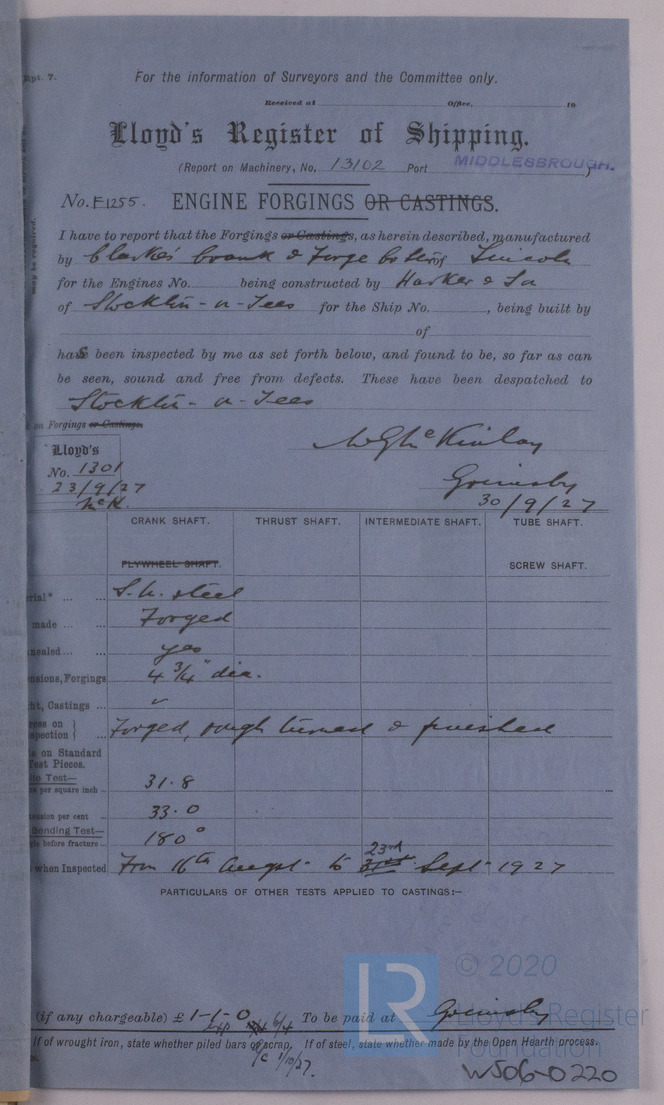 Rpt. 7.
For the information of Surveyors and the Committee only.
Received at Office, 19
Lloyd's Register of Shipping.
(Report on Machinery, No. 13102 Port MIDDLESBROUGH.)
No. F1255. ENGINE FORGINGS OR CASTINGS.
I have to report that the Forgings or Castings, as herein described, manufactured
by Clarke's Crank & Forge Lincoln
for the Engines No. being constructed by Harker &
of Stockton-o-Tees for the Ship No. , being built by
of
has been inspected by me as set forth below, and found to be, so far as can
be seen, sound and free from defects. These have been despatched to
Stockton-o-Tees
on Forgings or Castings.
Lloyd's
No. 1301
23/9/27
McK.
W G McKinlay
Grimsby
30/9/27
may be required.
CRANK SHAFT. THRUST SHAFT. INTERMEDIATE SHAFT. TUBE SHAFT.
FLYWHEEL SHAFT. SCREW SHAFT.
rial* ... ... S.M. steel
made ... Forged
nealed ... ... yes
nsions, Forgings 4 3/4" dia.
ht, Castings ...
ress on
spection } ... Forged, rough turned & finished
s on Standard
Test Pieces.
Test—
per square inch 31.8
ension per cent 33.0
Bending Test—
before fracture 180°
when Inspected From 16th August to 31st 23rd Sept 1927
PARTICULARS OF OTHER TESTS APPLIED TO CASTINGS:—
(if any chargeable) £ 1-1-0 6/4 To be paid at Grimsby
If of wrought iron, state whether piled bars or scrap. If of steel, state whether made by the Open Hearth process.
1/10/27.
© 2020
LR
Lloyd's Register
Foundation
W506-0220